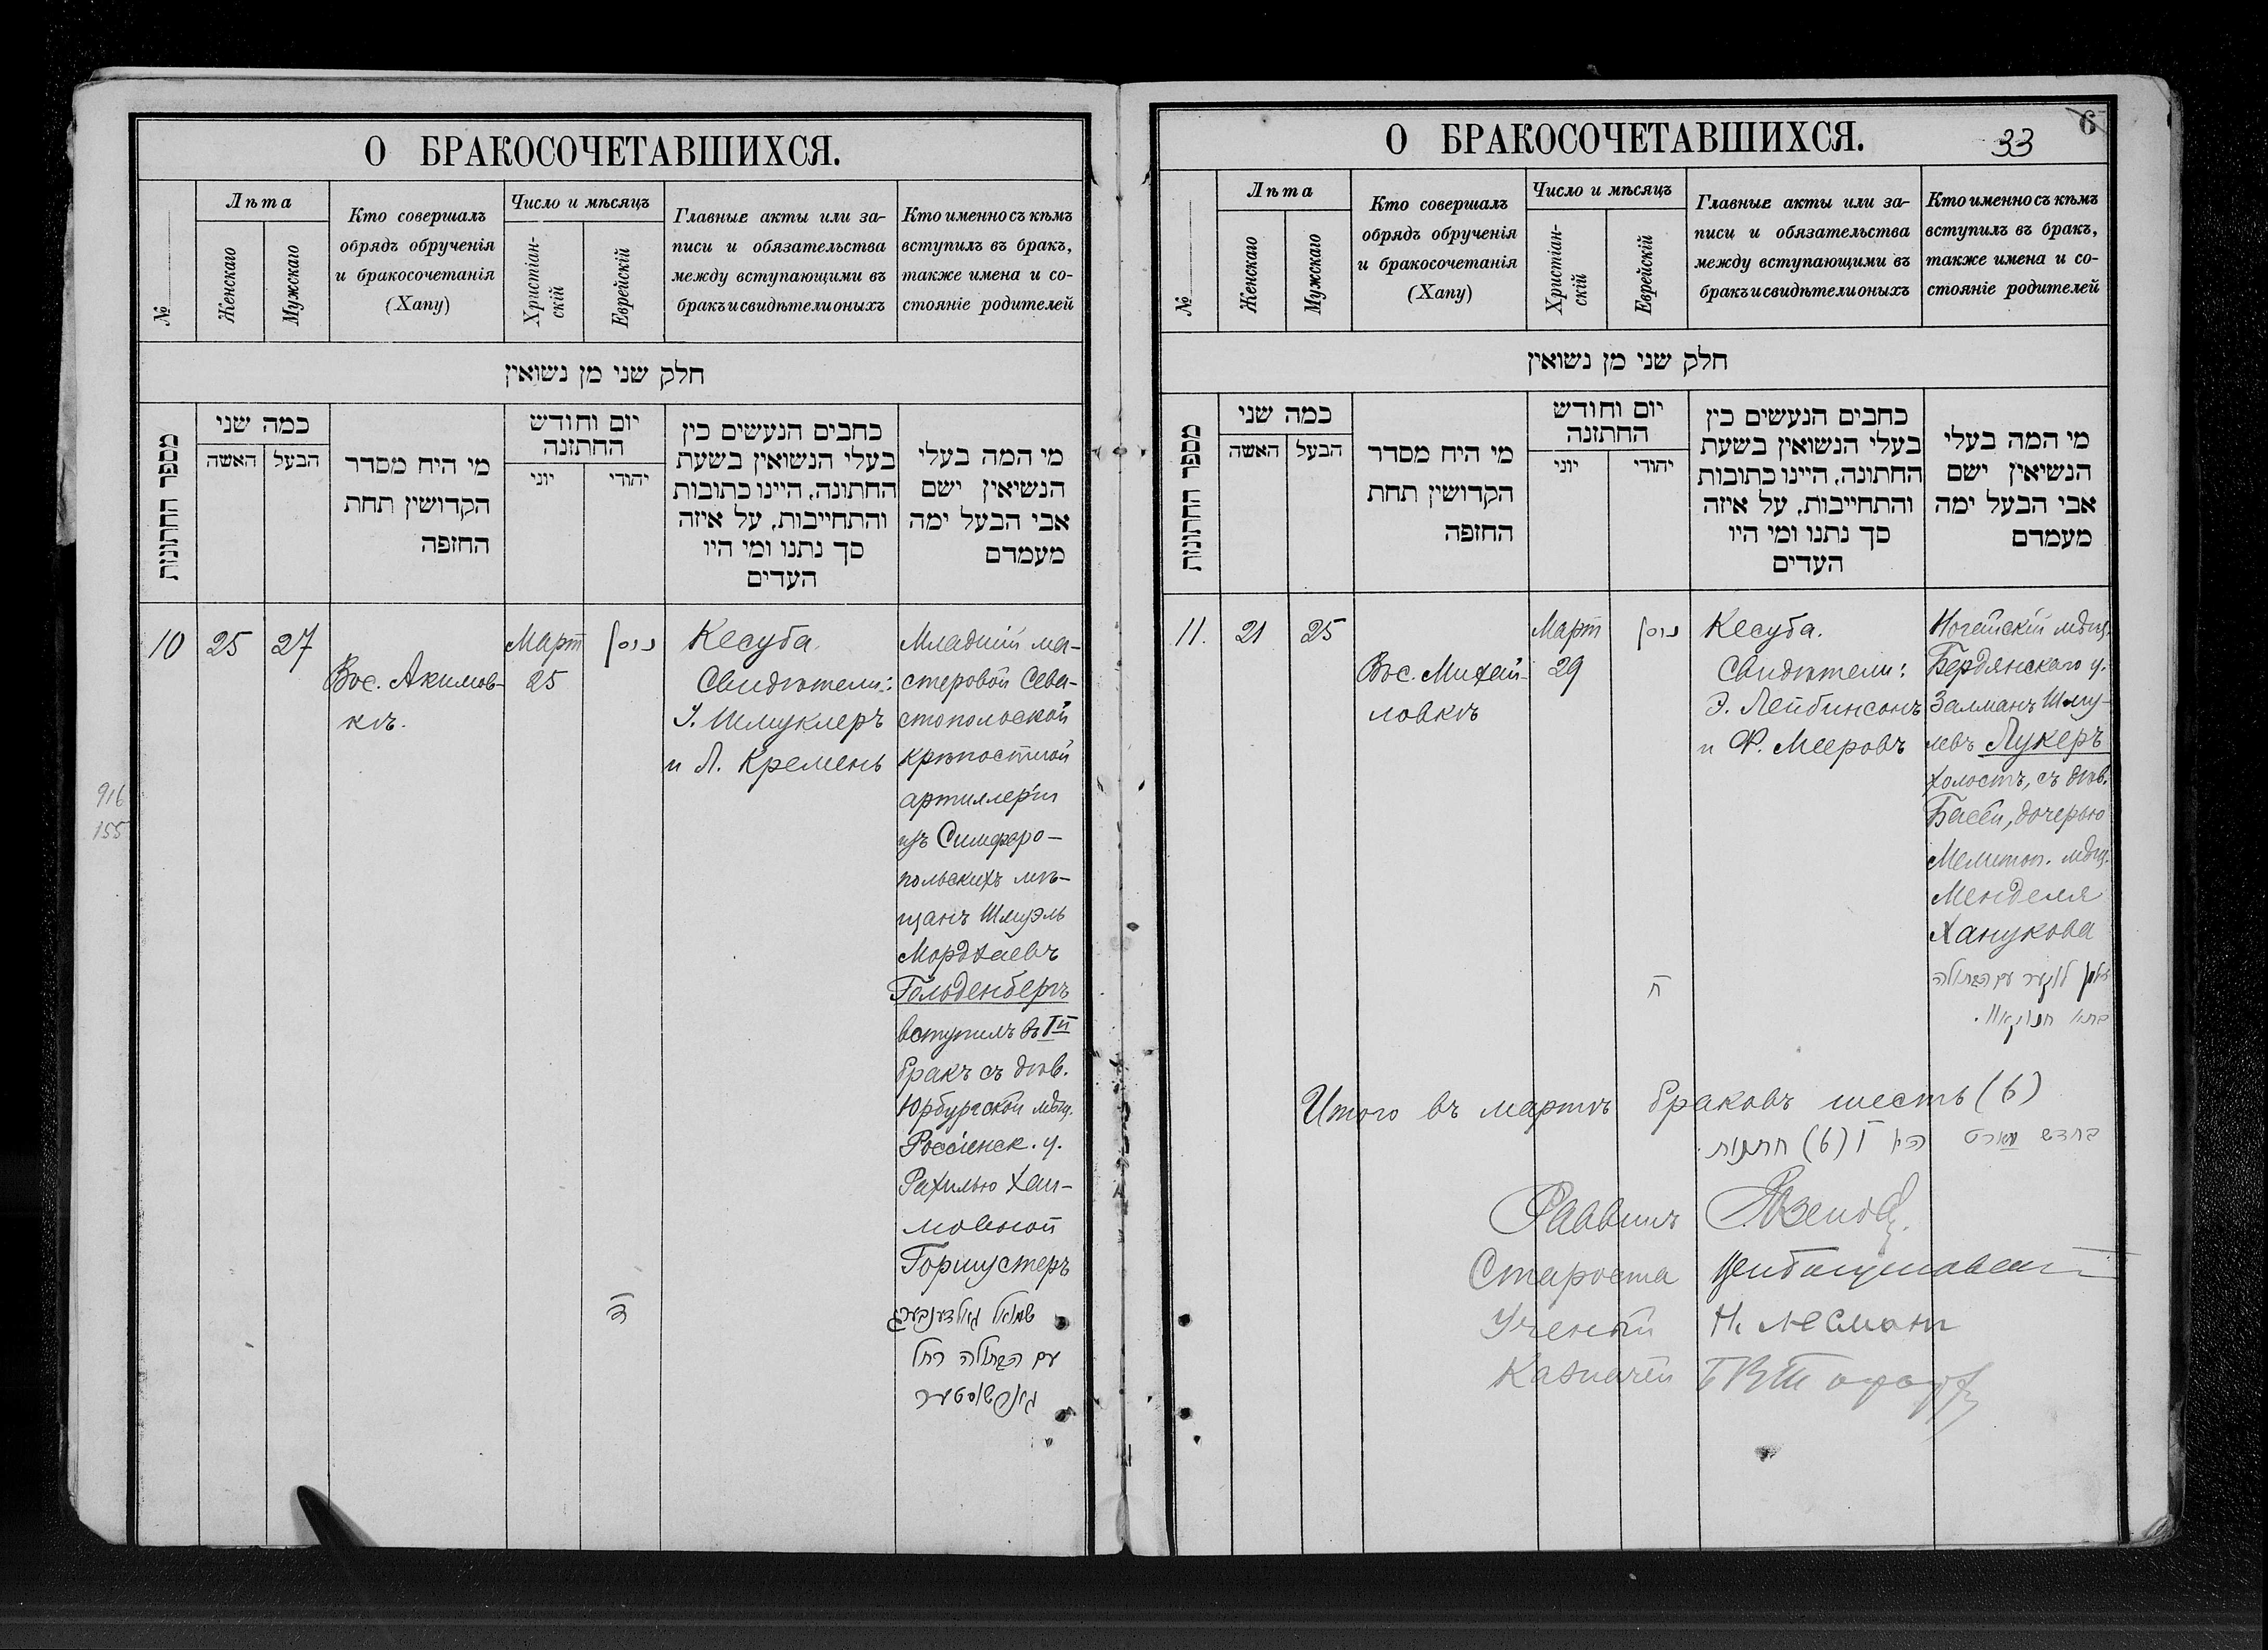 О БРАКОСОЧЕТАВШИХСЯ.
№
Лѣта
Женскаго
Мужскаго
Кто совершалъ
обрядъ обрученія
и бракосочетанія
(Хапу)
Число и мѣсяцъ
Христіан-
скій
Еврейскій
Главные акты или за-
писи и обязательства
между вступающими въ
бракъ и свидѣтели оныхъ
Кто именно съ кѣмъ
вступилъ въ бракъ,
также имена и со-
стояніе родителей
חלק שני מן נשואין
מספר החתונות
כמה שני
האשה
הבעל
מי היח מסדר
הקדושין תחת
החזפה
יום וחודש
החתזנה
יוני
יהודי
כחבים הנעשים כין
בעלי הנשואין בשעת
החתונה, היינו כתובות
והתחייבות, על איזה
סך נתנו ומי היו
העדים
מי המה בעלי
הנשיאין ישם
אבי הבעל ימה
מעמדם
10
25
27
Вос. Акимов-
кѣ.
Март
25
ניסן
Кесуба.
Свидѣтели:
У. Шмуклеръ
и Л. Кремень
Младшій ма-
стеровой Сева-
стопольской
Крѣпостной
артиллеріи
изъ Симферо-
польскихъ мѣ-
щанъ Шмуэль
Мордхаевъ
Гольденбергъ
вступилъ въ Iй
бракъ съ дѣв.
Юрбургской мѣщ.
Россіенск. у.
Рахилью Хаи-
мовной
Горшустеръ
ד
שמואל גאלדענבערג
עם הבתולה רחל
916
155
О БРАКОСОЧЕТАВШИХСЯ.
33
6
№
Лѣта
Женскаго
Мужскаго
Кто совершалъ
обрядъ обрученія
и бракосочетанія
(Хапу)
Число и мѣсяцъ
Христіан-
скій
Еврейскій
Главные акты или за-
писи и обязательства
между вступающими въ
бракъ и свидѣтели оныхъ
Кто именно съ кѣмъ
вступилъ въ бракъ,
также имена и со-
стояніе родителей
חלק שני מן נשואין
מספר החתונות
כמה שני
האשה
הבעל
מי היח מסדר
הקדושין תחת
החזפה
יום וחודש
החתזנה
יוני
יהודי
כחבים הנעשים כין
בעלי הנשואין בשעת
החתונה, היינו כתובות
והתחייבות, על איזה
סך נתנו ומי היו
העדים
מי המה בעלי
הנשיאין ישם
אבי הבעל ימה
מעמדם
11.
21
25
Вос. Михай-
ловкѣ
Март
29
ניסן
Кесуба.
Свидѣтели:
Э. Лейбинсонъ
и Ф. Мееровъ
Ногайскій мѣщ.
Бердянскаго у.
Залманъ Шму-
левъ Лукеръ
холостъ, съ дѣв.
Басей, дочерью
Мелитоп. мѣщ.
Менделя
Ханукова
ח
זלמן לוקער עם הבתולה
Итого въ мартѣ браковъ шесть (6)
בחדש מארט היו ו (6) חתונות
Раввинъ
Староста
Ученый Н. Лесманъ
Казначей